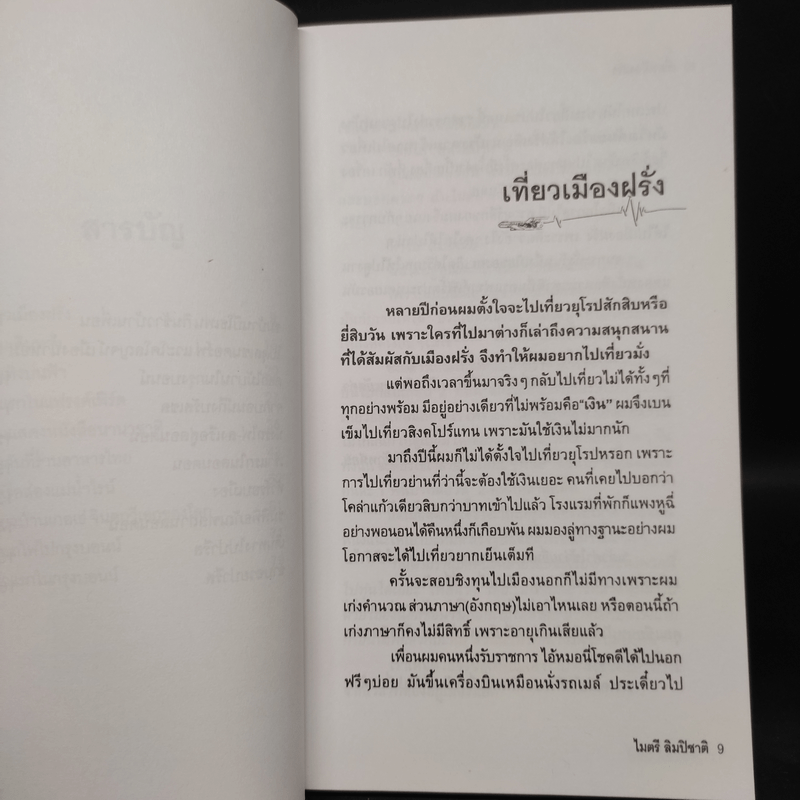 เที่ยวเมืองฝรั่ง
หลายปีก่อนผมตั้งใจจะไปเที่ยวยุโรปสักสิบหรือ
ยี่สิบวัน เพราะใครที่ไปมาต่างก็เล่าถึงความสนุกสนาน
ที่ได้สัมผัสกับเมืองฝรั่ง จึงทำให้ผมอยากไปเที่ยวมั่ง
แต่พอถึงเวลาขึ้นมาจริงๆ กลับไปเที่ยวไม่ได้ทั้งๆที่
ทุกอย่างพร้อม มีอยู่อย่างเดียวที่ไม่พร้อมคือ“เงิน” ผมจึงเบน
เข็มไปเที่ยวสิงคโปร์แทน เพราะมันใช้เงินไม่มากนัก
มาถึงปีนี้ผมก็ไม่ได้ตั้งใจไปเที่ยวยุโรปหรอก เพราะ
การไปเที่ยวย่านที่ว่านี้จะต้องใช้เงินเยอะ คนที่เคยไปบอกว่า
โคล่าแก้วเดียวสิบกว่าบาทเข้าไปแล้ว โรงแรมที่พักก็แพงหูฉี่
อย่างพอนอนได้คืนหนึ่งก็เกือบพัน ผมมองลู่ทางฐานะอย่างผม
โอกาสจะได้ไปเที่ยวยากเย็นเต็มที
ครั้นจะสอบชิงทุนไปเมืองนอกก็ไม่มีทางเพราะผม
เก่งคำนวณ ส่วนภาษา(อังกฤษ)ไม่เอาไหนเลย หรือตอนนี้ถ้า
เก่งภาษาก็คงไม่มีสิทธิ์ เพราะอายุเกินเสียแล้ว
เพื่อนผมคนหนึ่งรับราชการ ไอ้หมอนี่โชคดีได้ไปนอก
ฟรีๆบ่อย มันขึ้นเครื่องบินเหมือนนั่งรถเมล์ ประเดี๋ยวไป
ไมตรี ลิมปิชาติ 9